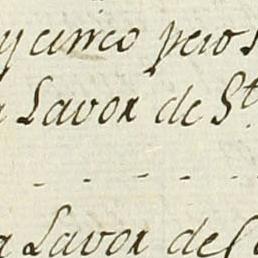 y cinco pesos
a Lavor de St
- - - - -
a Lavor de